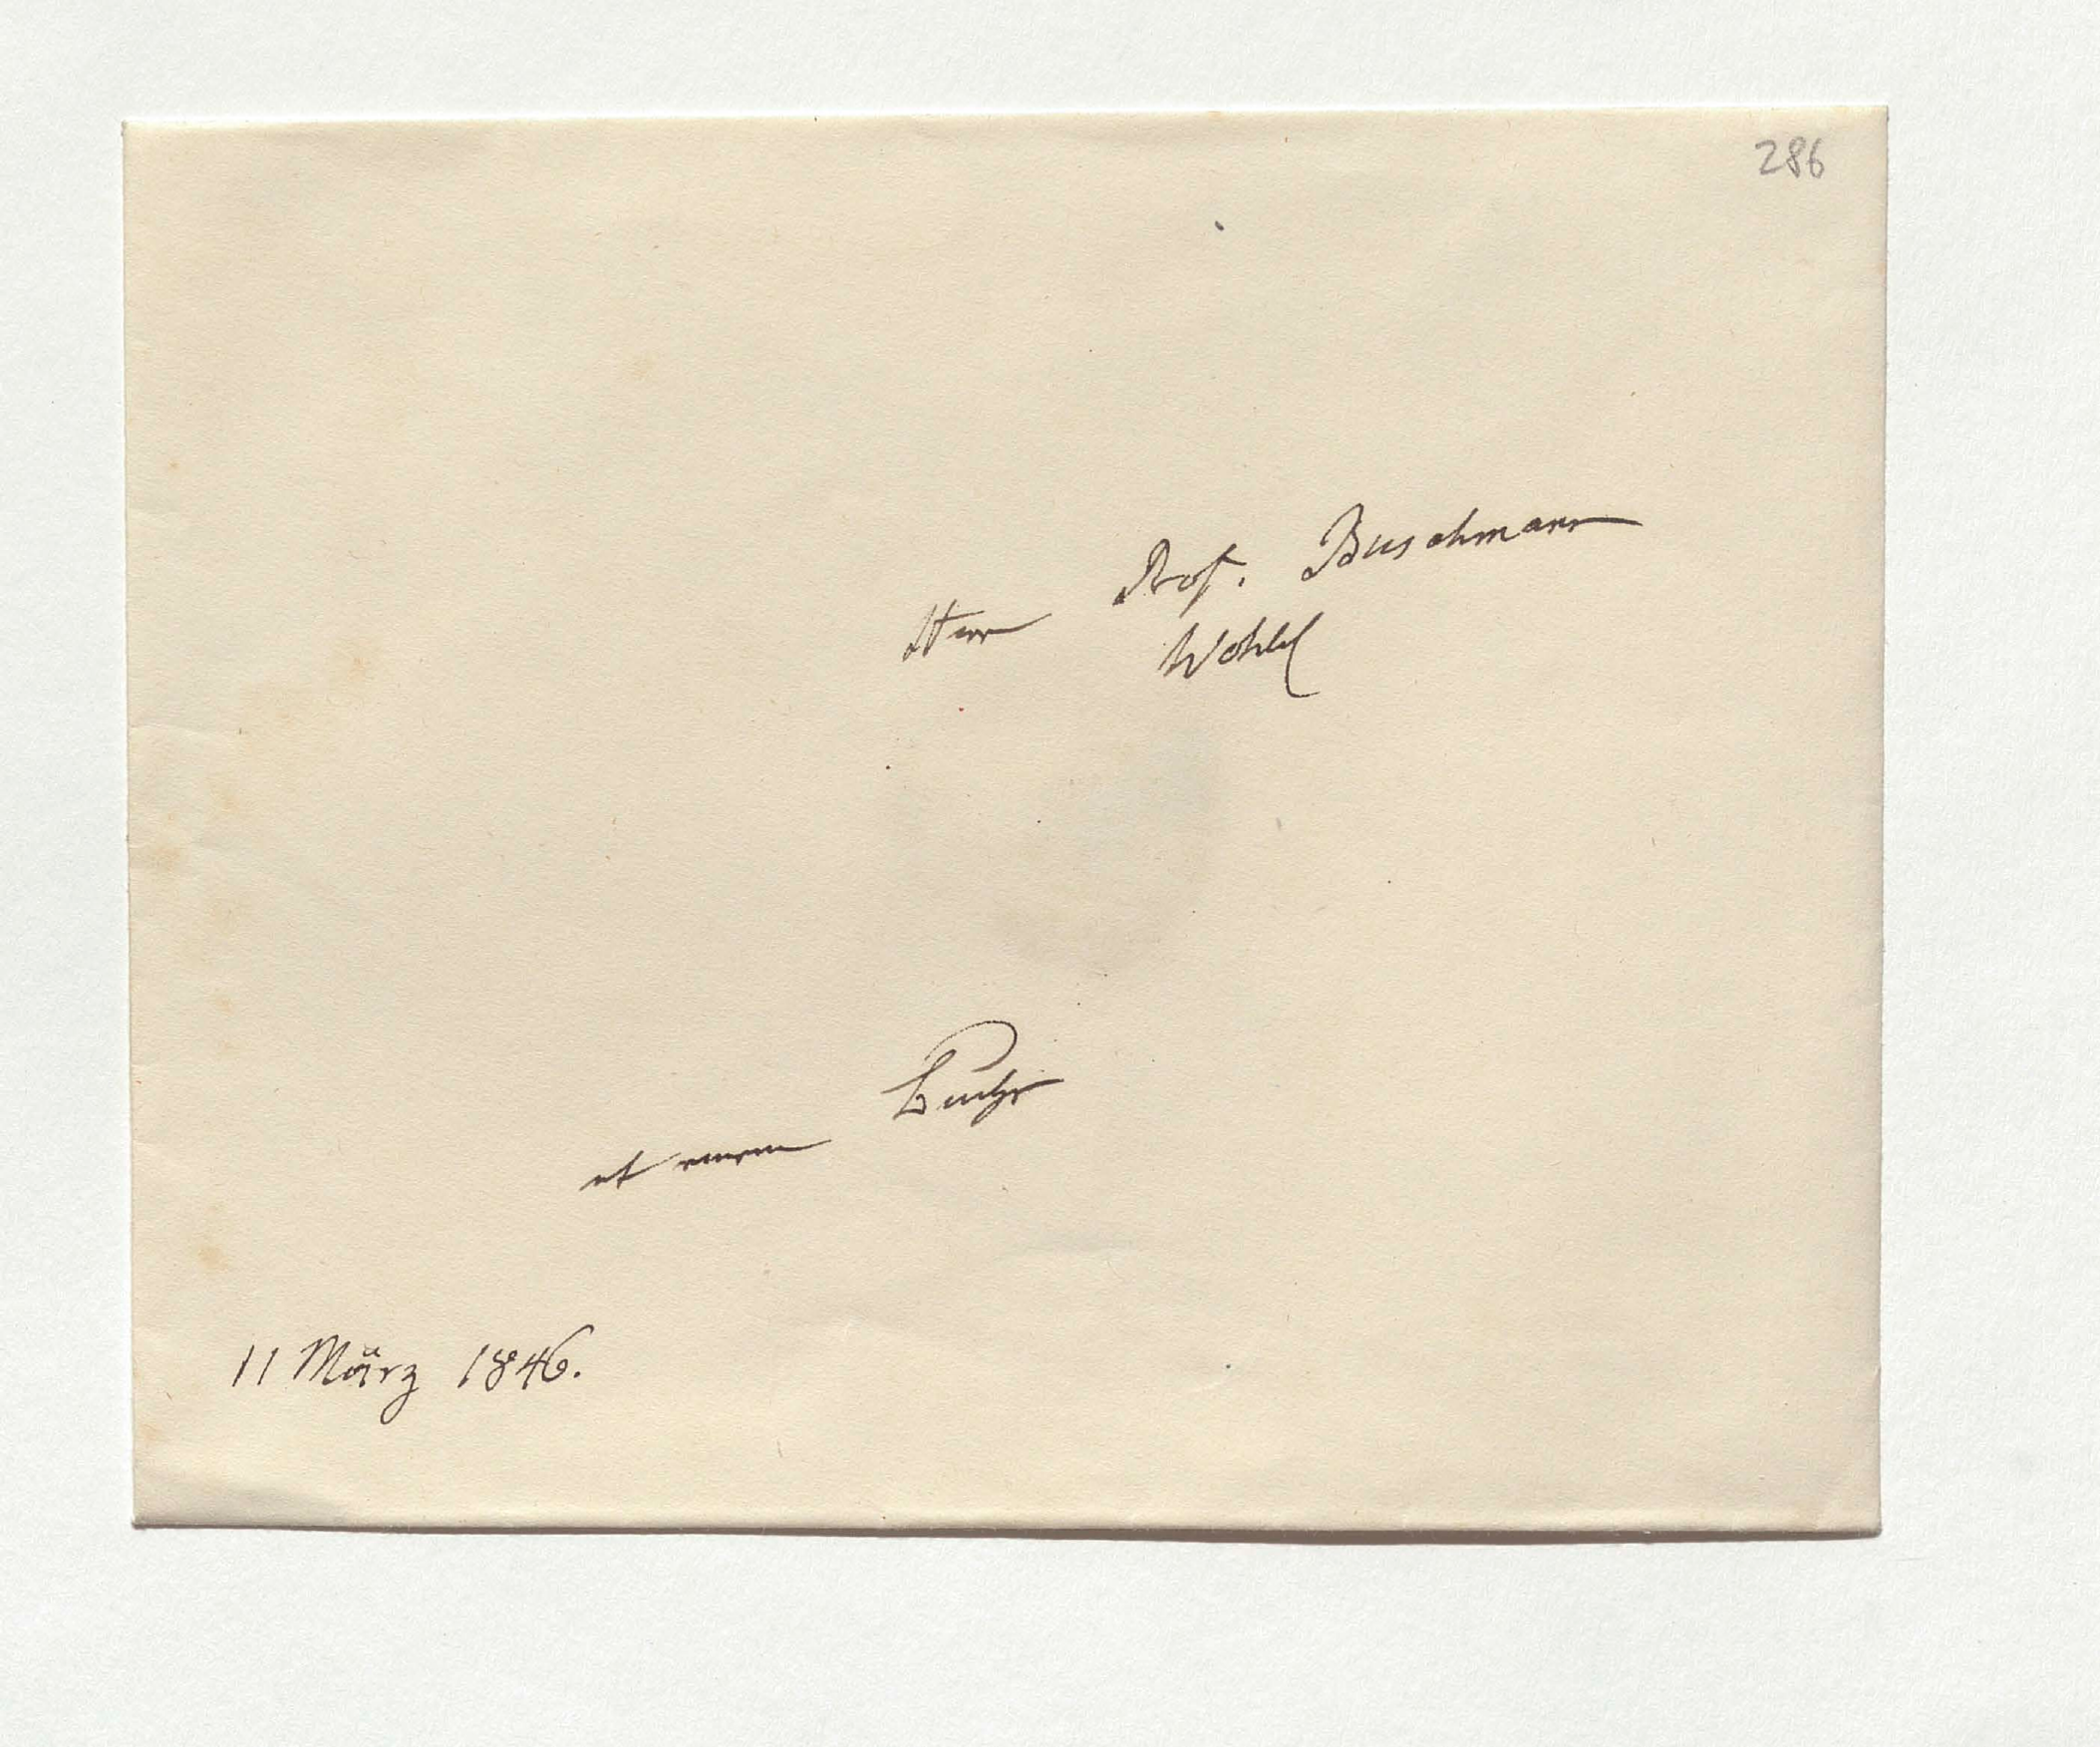 286
Herr Prof. Buschmann
Wohlg
einem Buche
11 März 1846.